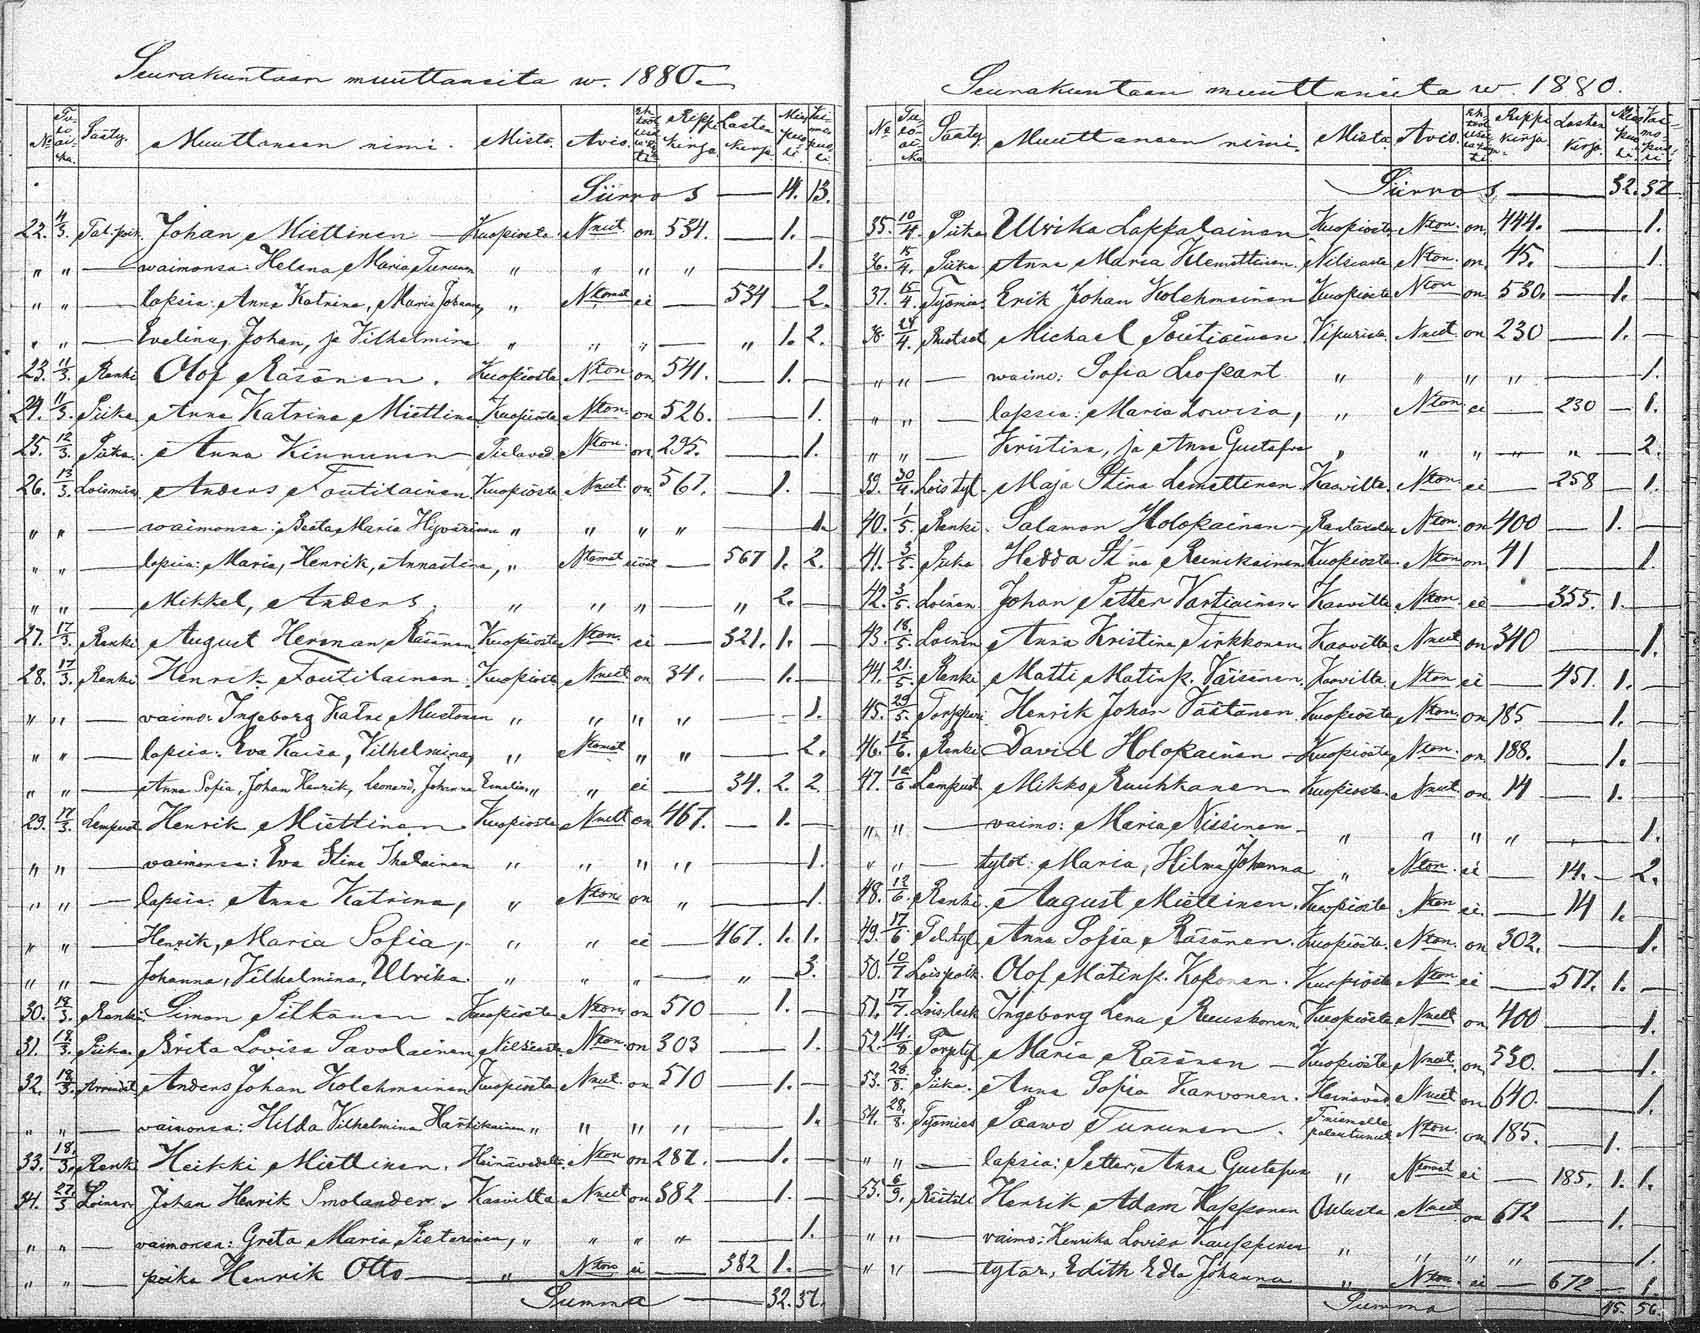 Seurakuntaan muuttaneita w. 1880.
No Tuloaika. Sääty. Muuttaneen nimi. Mistä. Avio. Rippikirja. Lastenkirja. Miespuoli. Vaimopuoli.
Siirros — 14. 13.
22. 4/3. Johan Miettinen — Kuopiosta Nait on 534. — 1. —
„ „ — waimonsa: Helena Maria Turunen „ „ „ „ — 1.
„ „ — lapsia: Anna Katrina, Maria Johanna, „ Ntomat ei — 534 — 2.
„ „ — Evelina, Johan, ja Vilhelmina „ „ „ — „ 1. 2.
23. 11/3. Renki Olof Räsänen. Kuopiosta Nton on 541. — 1. —
24. 11/3. Piika Anna Katrina Miettinen Kuopiosta Nton on 526. — 1.
25. 12/3. Piika. Anna Kinnunen Nton. on 295. — 1.
26. 13/3. Anders Toutilainen Kuopiosta Nait on 567. — 1. —
„ „ — waimonsa: Beata Maria Hyvärinen „ „ „ „ — 1.
„ „ — lapsia: Maria, Henrik, Annastina, „ Ntomat 567 1. 2.
„ „ — Mikkel, Anders „ „ „ — „ 2. —
27. 17/3. Renki August Herman Räsänen Kuopiosta Nton. ei — 321. 1. —
28. 17/3. Renki Henrik Toutilainen Kuopiosta Nait on 34. — 1. —
„ „ — vaimo: Ingeborg Katri Mustonen „ „ „ „ — 1.
„ „ — lapsia: Eva Kaisa, Vilhelmina, „ Ntomat „ „ — 2.
„ „ — Anna Sofia, Johan Henrik, Leonard, Johanna Emelia „ „ ei — 34. 2. 2.
29. 17/3. Henrik Miettinen Kuopiosta Nait on 467. — 1. —
„ „ — vaimonsa: Eva Stina Ihalainen „ „ „ „ — 1.
„ „ — lapsia: Anna Katrina, „ Nton on „ — 1.
„ „ — Henrik, Maria Sofia, „ „ ei — 467. 1. 1.
„ „ — Johanna, Vilhelmina, Ulrika. „ „ „ — „ — 3.
30. 18/3. Renki Simon Pitkänen Kuopiosta Nton on 510 — 1. —
31. 18/3. Piika. Brita Lovisa Savolainen Nilsiästä Nton on 303 — 1.
32. 18/3. Anders Johan Kolehmainen Kuopiosta Nait on 510 — 1. —
„ „ — vaimonsa: Hilda Vilhelmina Hartikainen „ „ „ „ — 1.
33. 18/3. Renki Heikki Miettinen. Heinävedeltä Nton on 287. — 1. —
34. 27/3 Loinen Johan Henrik Smolander. Kaavilta Nait on 382 — 1. —
„ „ — vaimonsa: Greta Maria Pietarinen, „ „ „ „ — 1.
„ „ — poika Henrik Otto — „ Nton ei — 382 1. —
Summa — 32. 37.
Seurakuntaan muuttaneita w. 1880.
No Tuloaika Sääty. Muuttaneen nimi. Mistä Avio. Rippikirja Lastenkirja. Miespuoli. Vaimopuoli.
Siirros — 32. 37
35. 10/4. Piika Ulrika Lappalainen Kuopiosta Nton. on 444. — 1.
36. 15/4. Piika. Anna Maria Klemettinen Nilsiästä Nton. on 45. — 1.
37. 15/4. Työmies Erik Johan Kolehmainen Kuopiosta Nton on 530. — 1. —
38. 24/4. Michael Poutiainen Viipurista Nait on 230 — 1. —
„ „ — waimo: Sofia Leopart „ „ „ „ — 1.
„ „ — lapsia: Maria Lowisa, „ Nton ei — 230 — 1.
„ „ — Kristina, ja Anna Gustafva „ „ „ — „ — 2.
39. 30/4. Lois.tyt. Maja Stina Lemettinen Kaavilta. Nton. ei — 258 — 1.
40. 1/5. Renki. Salamon Holopainen Nton. on 400 — 1. —
41. 3/5. Piika Hedda Stina Reinikainen Kuopiosta Nton on 41 — 1.
42. 3/5. Loinen. Johan Petter Vartiainen Kaavilta Nton. ei — 355. 1. —
43. 18/5. Loinen Anna Kristina Tirkkonen Kaavilta Nait on 340 — 1.
44. 21/5. Renki Matti Matinp. Väisänen. Kaavilta Nton ei — 451. 1. —
45. 29/5. Torppari Henrik Johan Västänen Kuopiosta Nton. on 185 — 1. —
46. 12/6. Renki David Holopainen — Kuopiosta Nton. on 188. — 1. —
47. 12/6 Mikko Ruuhkanen Kuopiosta Nait on 14 — 1. —
„ „ — vaimo: Maria Nissinen — „ „ „ „ „ 1.
„ „ — tytöt: Maria, Hilma Johanna „ Nton. ei — 14. — 2.
48. 12/6. Renki. August Miettinen. Kuopiosta Nton ei. — 14 1. —
49. 17/6. Anna Sofia Räsänen. Kuopiosta. Nton. on 302. — 1.
50. 10/7 Loispoik. Olof Matinp. Kokonen. Kuopiosta Nton ei — 517. 1. —
51. 17/7. Lois.lesk Ingeborg Lena Ruuskonen Kuopiosta Nait on 400 — 1.
52. 14/8 Maria Räsänen — Kuopiosta Nait. on 530. — 1.
53. 28/8. Piika. Anna Sofia Karvonen. Heinäved. Nait on 640. — 1.
54. 28/8. Työmies Paawo Turunen. palautunut Nton. on 185. — 1. —
„ „ — lapsia: Petter, Anna Gustafva „ Ntomat ei — 185. 1. 1.
55. 6/9. Räätäli Henrik Adam Happonen Oulusta Nait on 672 — 1. —
„ „ — vaimo: Henrika Lovisa Kauppinen „ „ „ „ — 1.
„ „ — tytär, Edith Edla Johanna „ Nton. ei — 672 — 1.
Summa — 45. 56.